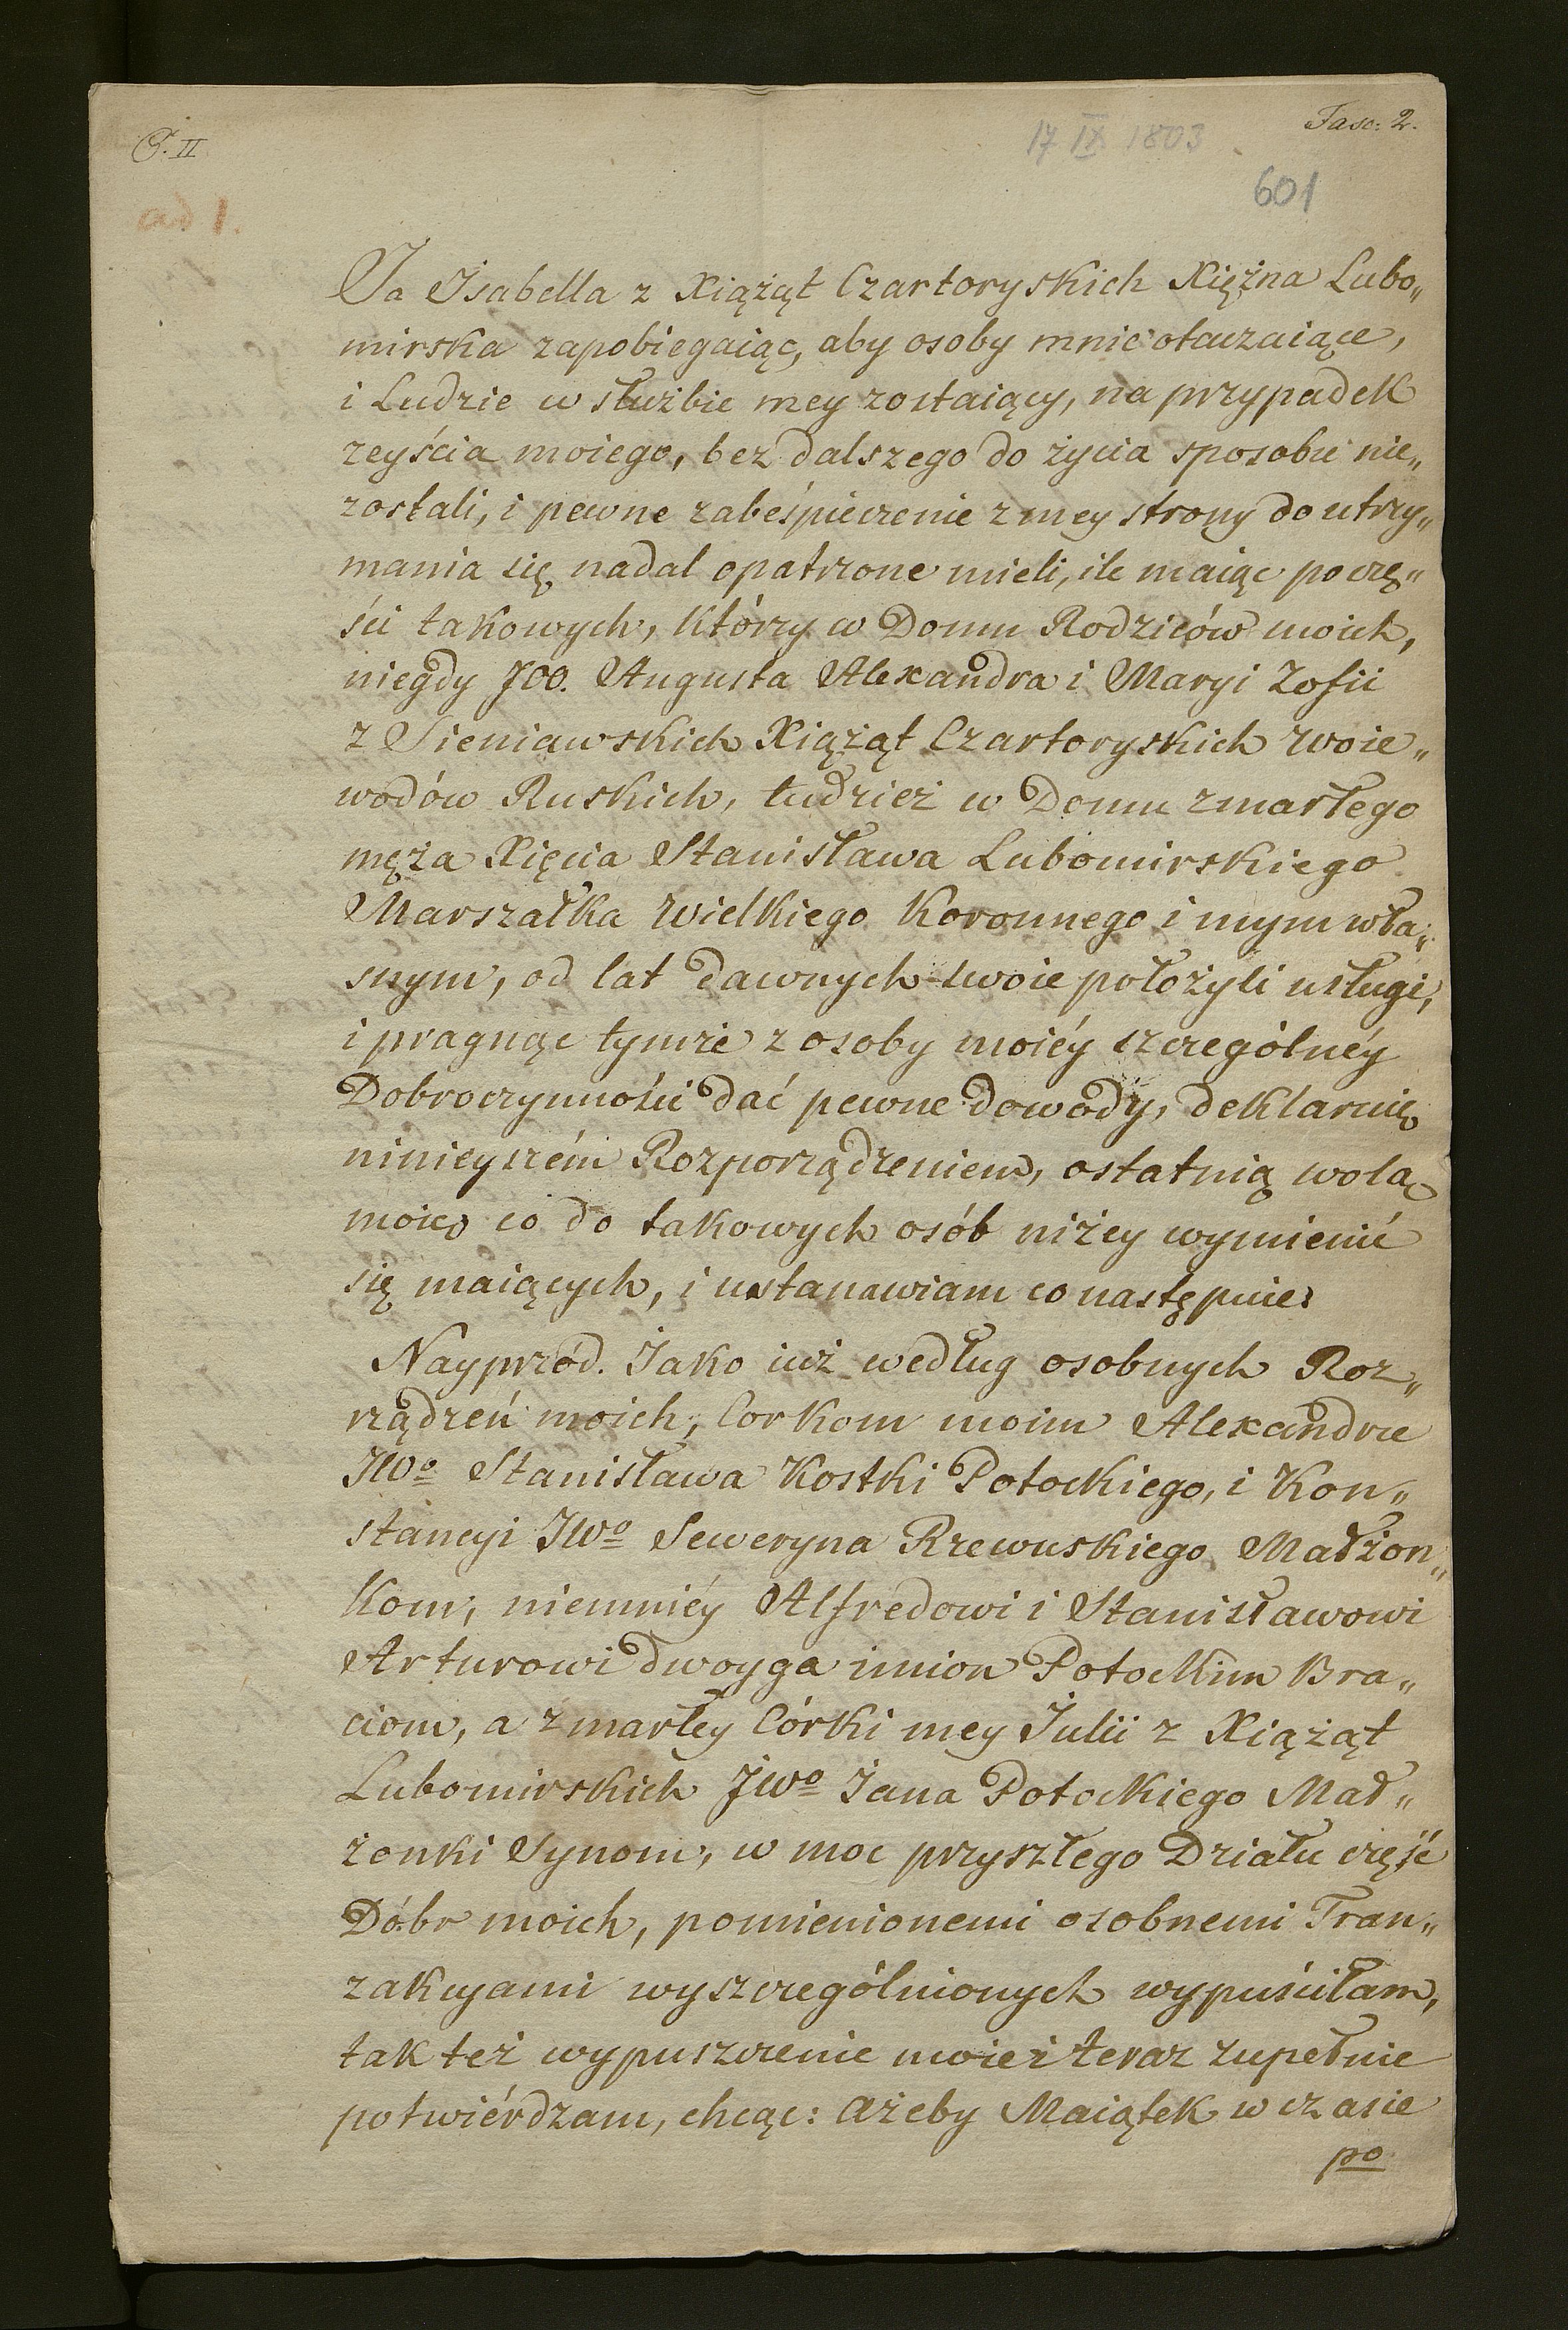 T. II
17 IX 1803
Fasc: 2.
601
ad 1.
Ja Isabella z Xiążąt Czartoryskich Xiężna Lubo„
mirska zapobiegaiąc, aby osoby mnie otaczaiące,
i Ludzie w służbie mey zostaiący, na przypadek
zeyścia moiego, bez dalszego do życia sposobu nie„
zostali, i pewne zabeśpieczenie z mey strony do utrzy„
mania się nadal opatrzone mieli, ile maiąc po czę„
ści takowych, którzy w Domu Rodziców moich,
niegdy JOO. Augusta Alexandra i Maryi Zofii
z Sieniawskich Xiążąt Czartoryskich Woie„
wodów Ruskich, tudzież w Domu zmarłego
męża Xięcia Stanisława Lubomirskiego
Marszałka Wielkiego Koronnego i mym wła„
snym, od lat dawnych swoie położyli usługi,
i pragnąc tymże z osoby moiéy szczególnéy
Dobroczynności dać pewne dowody, deklaruię
ninieyszém Rozporządzeniem, ostatnią wolą
moię co do takowych osób niżey wymienić
się maiących, i ustanawiam co następuie:
Nayprzód. Jako iuż według osobnych Roz„
rządzeń moich, Corkom moim Alexandrze
JWo Stanisława Kostki Potockiego, i Kon„
stancyi JWo Seweryna Rzewuskiego Małżon„
kom, niemniéy Alfredowi i Stanisławowi
Arturowi dwoyga imion Potockim Bra„
ciom, a zmarłey Córki mey Julii z Xiążąt
Lubomirskich JWo Jana Potockiego Mał„
żonki Synom, w moc przyszłego Działu część
Dóbr moich, pomienionemi osobnemi Tran„
zakcyami wyszczególnionych wypuściłam,
tak też wypuszczenie moie i teraz zupełnie
potwiérdzam, chcąc: ażeby Maiątek w czasie
po